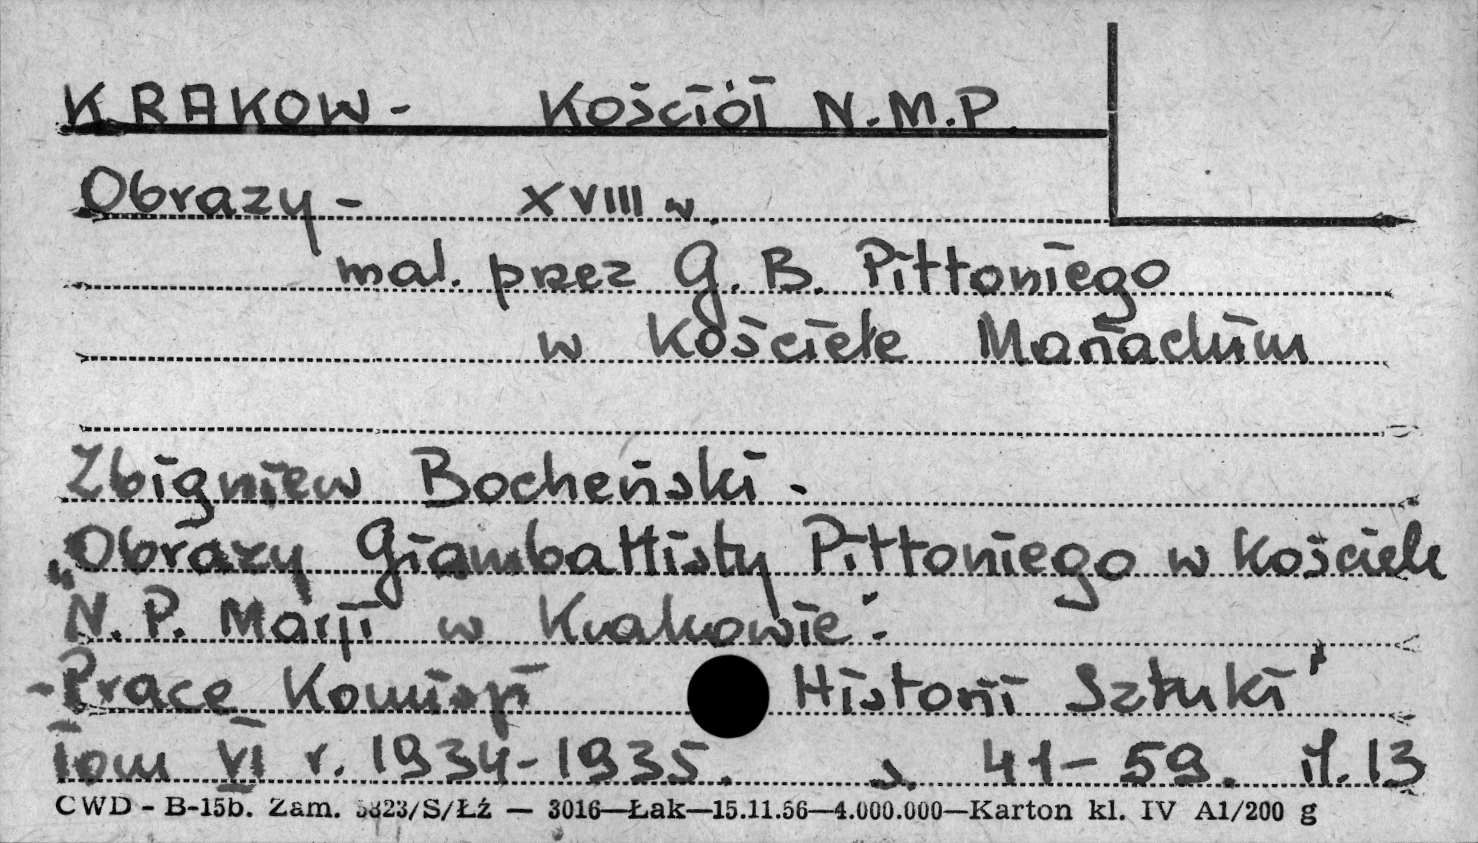 KRAKOW - Kościół N.M.P.
Obrazy - XVIII w.
mal. przez G. B. Pittoniego
w Kościele Mariackim
Zbigniew Bocheński.
„Obrazy Giambattisty Pittoniego w kościele
N. P. Marji w Krakowie".
"Prace Komisji Historii Sztuki"
Tom VI r. 1934-1935. s. 41-59. il. 13
CWD - B-15b. Zam. 5823/S/Łź — 3016—Łak—15.11.56—4.000.000—Karton kl. IV A1/200 g